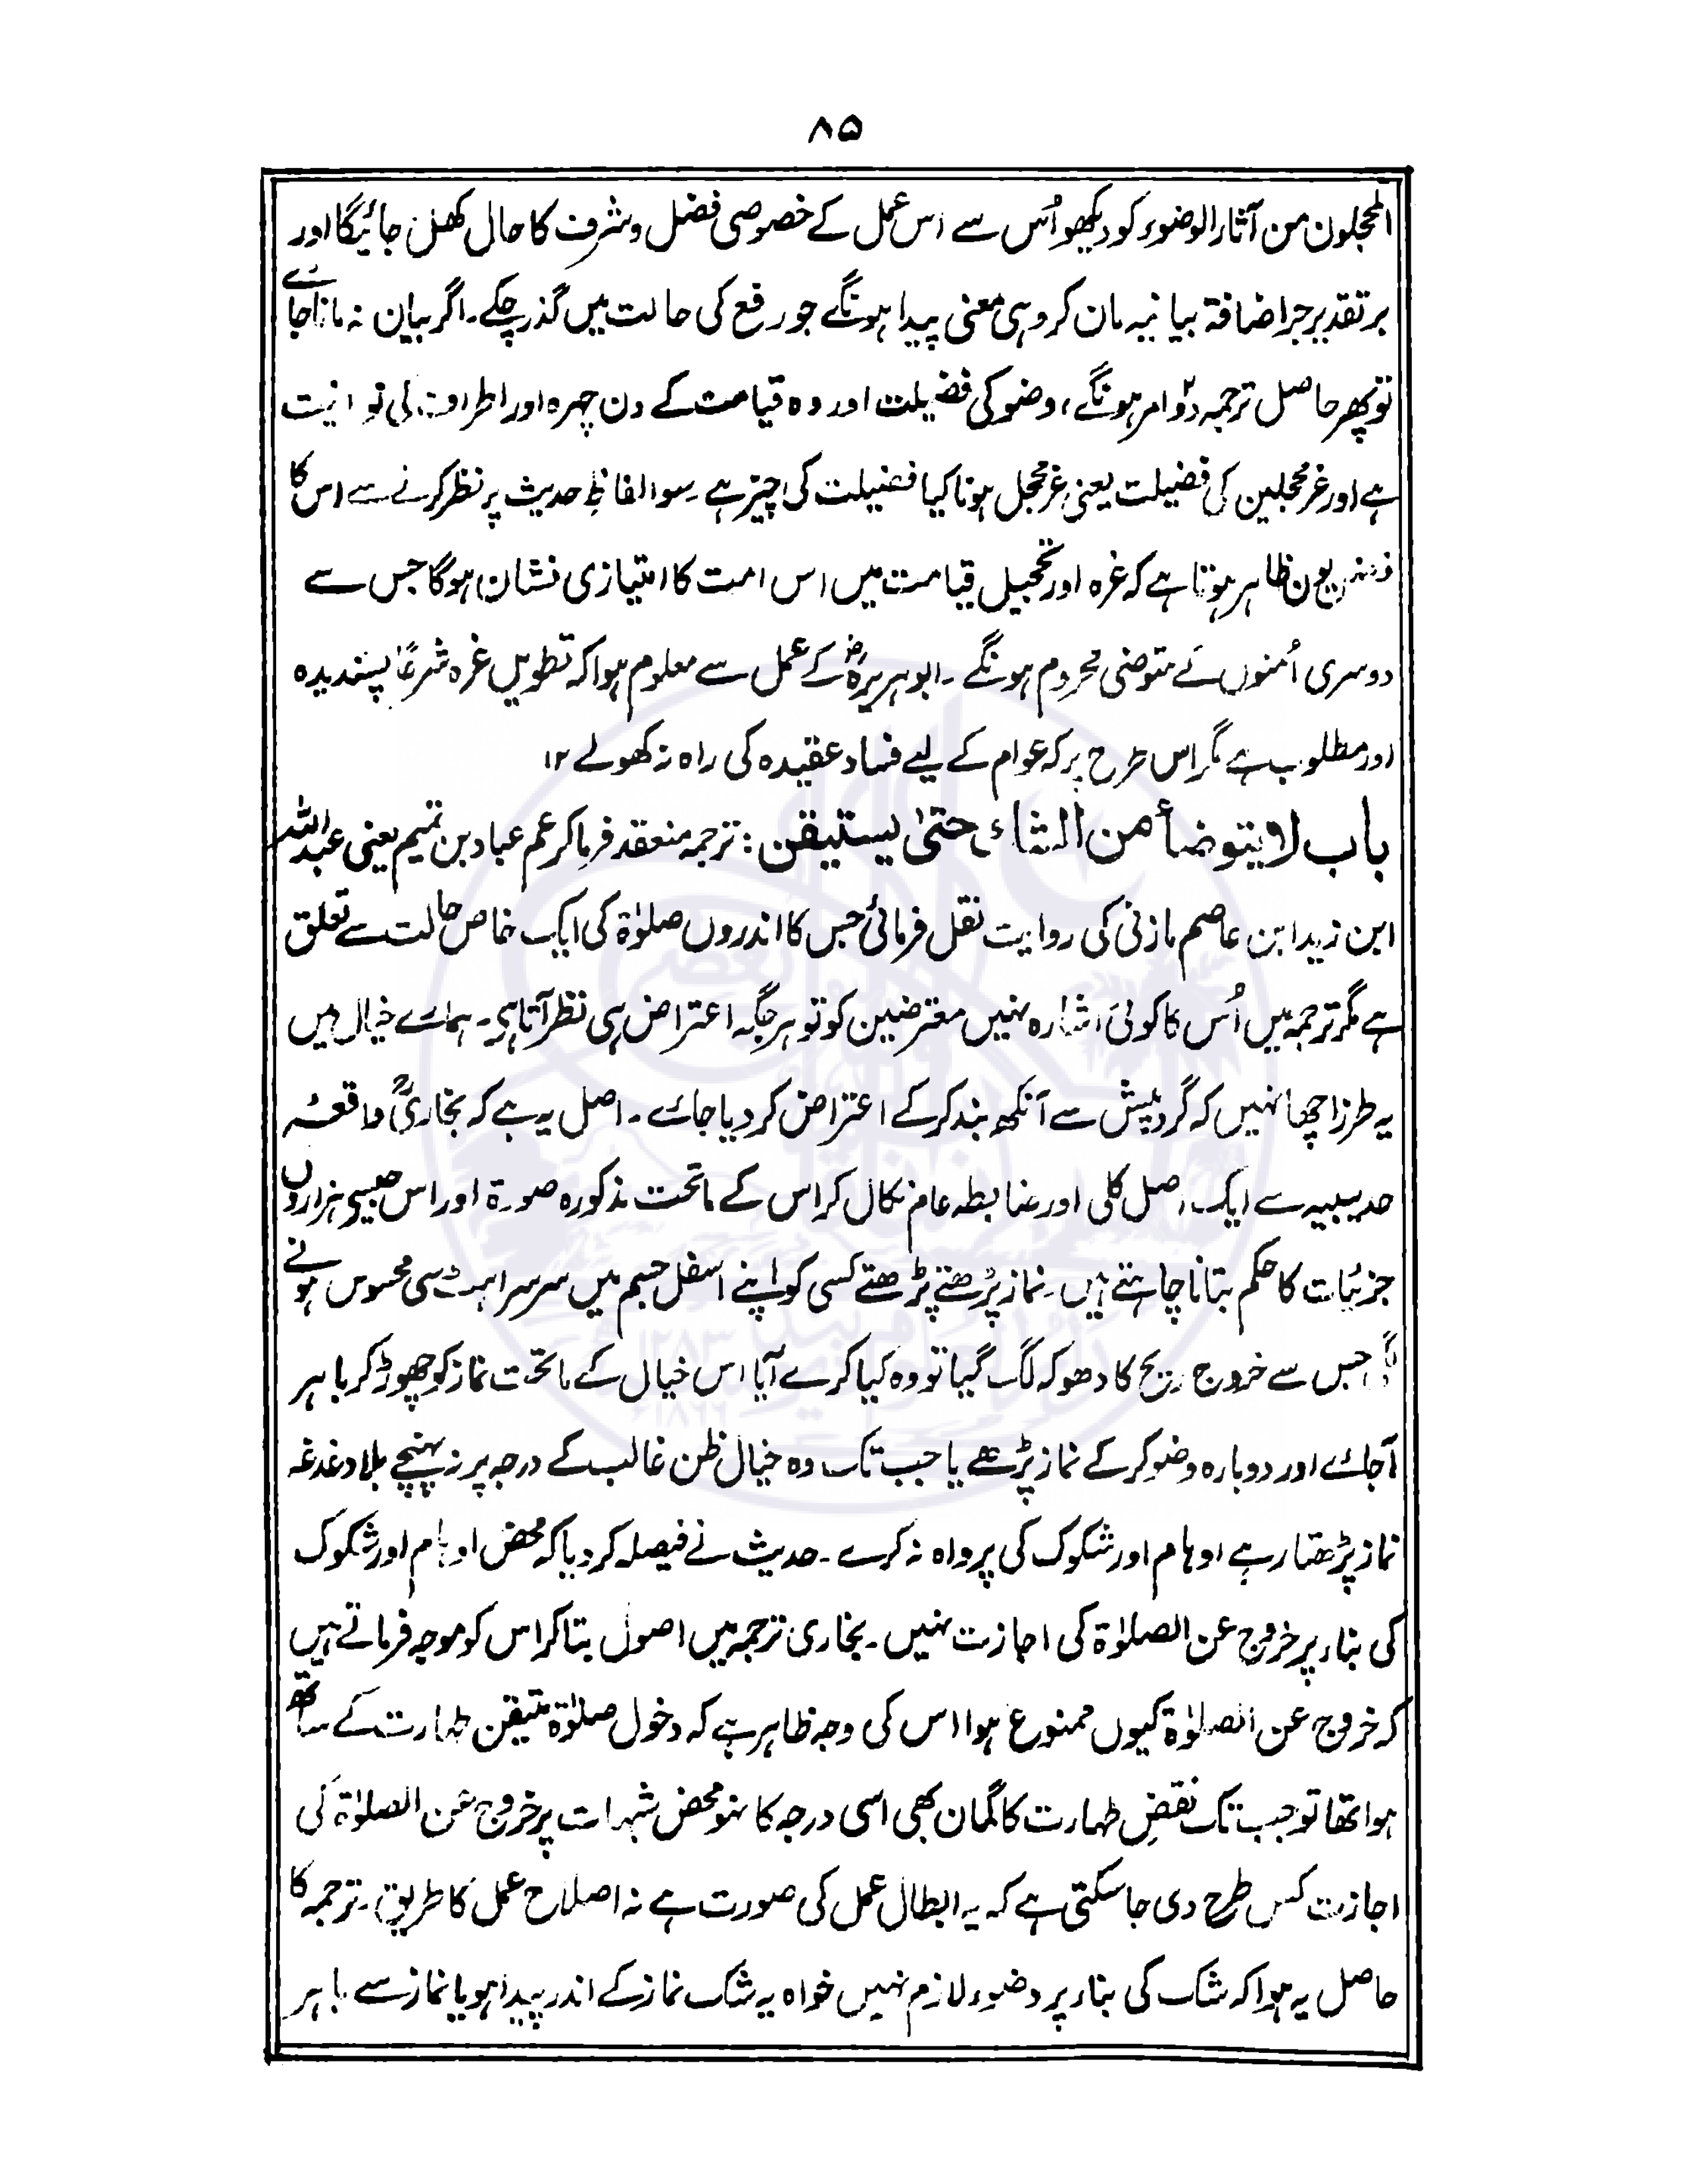 ۸۵
المحجلون من آثار الوضوء کو دیکھو اُس سے اس عمل کے خصوصی فضل و شرف کا حال کھل جائیگا اور
بر تقدیر جر اضافۃ بیانیہ مان کر وہی معنی پیدا ہونگے جو رفع کی حالت میں گذر چکے۔ اگر بیان نہ مانا جائے
تو پھر حاصل ترجمہ دو امر ہونگے، وضو کی فضیلت اور وہ قیامت کے دن چہرہ اور اطراف کی نورانیت
ہے اور غر محجلین کی فضیلت یعنی غر محجل ہونا کیا فضیلت کی چیز ہے۔ سو الفاظِ حدیث پر نظر کرنے سے اس کا
یوں ظاہر ہوتا ہے کہ غرہ اور تحجیل قیامت میں اس امت کا امتیازی نشان ہوگا جس سے
دوسری اُمتوں کے متوضی محروم ہونگے۔ ابوہریرہؓ کے عمل سے معلوم ہوا کہ تطویل غرہ شرعًا پسندیدہ
اور مطلوب ہے مگر اس طرح پر کہ عوام کے لیے فساد عقیدہ کی راہ نہ کھولے ۱۲
باب لا یتوضأ من الشاء حتیٰ یستیقن: ترجمہ منعقد فرماکر عم عباد بن تمیم یعنی عبداللہ
ابن زید ابن عاصم مازنی کی روایت نقل فرمائی جس کا اندرون صلوٰۃ کی ایک خاص حالت سے تعلق
ہے مگر ترجمہ میں اُس کا کوئی اشارہ نہیں معترضین کو تو ہر جگہ اعتراض ہی نظر آتا ہی۔ ہمارے خیال میں
یہ طرز اچھا نہیں کہ گرد و پیش سے آنکھ بند کرکے اعتراض کر دیا جائے۔ اصل یہ ہے کہ بخاریؒ واقعۂ
حدیبیہ سے ایک اصل کلی اور ضابطہ عام نکال کر اس کے ماتحت مذکورہ صورۃ اور اس جیسی ہزاروں
جزئیات کا حکم بتانا چاہتے ہیں۔ نماز پڑھتے پڑھتے کسی کو اپنے اسفل جسم میں سرسراہٹ سی محسوس ہونے
لگی جس سے خروج ریح کا دھوکہ لگ گیا تو وہ کیا کرے آیا اس خیال کے ماتحت نماز کو چھوڑ کر باہر
آجائے اور دوبارہ وضو کرکے نماز پڑھے یا جب تک وہ خیال ظن غالب کے درجہ پر نہ پہنچے بلا دغدغہ
نماز پڑھتا رہے اوہام اور شکوک کی پرواہ نہ کرے۔ حدیث نے فیصلہ کر دیا کہ محض اوہام اور شکوک
کی بناء پر خروج عن الصلوٰۃ کی اجازت نہیں۔ بخاری ترجمہ میں اصول بتا کر اس کو موجہ فرماتے ہیں
کہ خروج عن الصلوٰۃ کیوں ممنوع ہوا اس کی وجہ ظاہر ہے کہ دخول صلوٰۃ متیقن طہارت کے ساتھ
ہوا تھا تو جب تک نقضِ طہارت کا گمان بھی اسی درجہ کا نہو محض شبہات پر خروج عن الصلوٰۃ کی
اجازت کس طرح دی جا سکتی ہے کہ یہ ابطال عمل کی صورت ہے نہ اصلاح عمل کا طریق۔ ترجمہ کا
حاصل یہ ہوا کہ شک کی بناء پر وضوء لازم نہیں خواہ یہ شک نماز کے اندر پیدا ہو یا نماز سے باہر